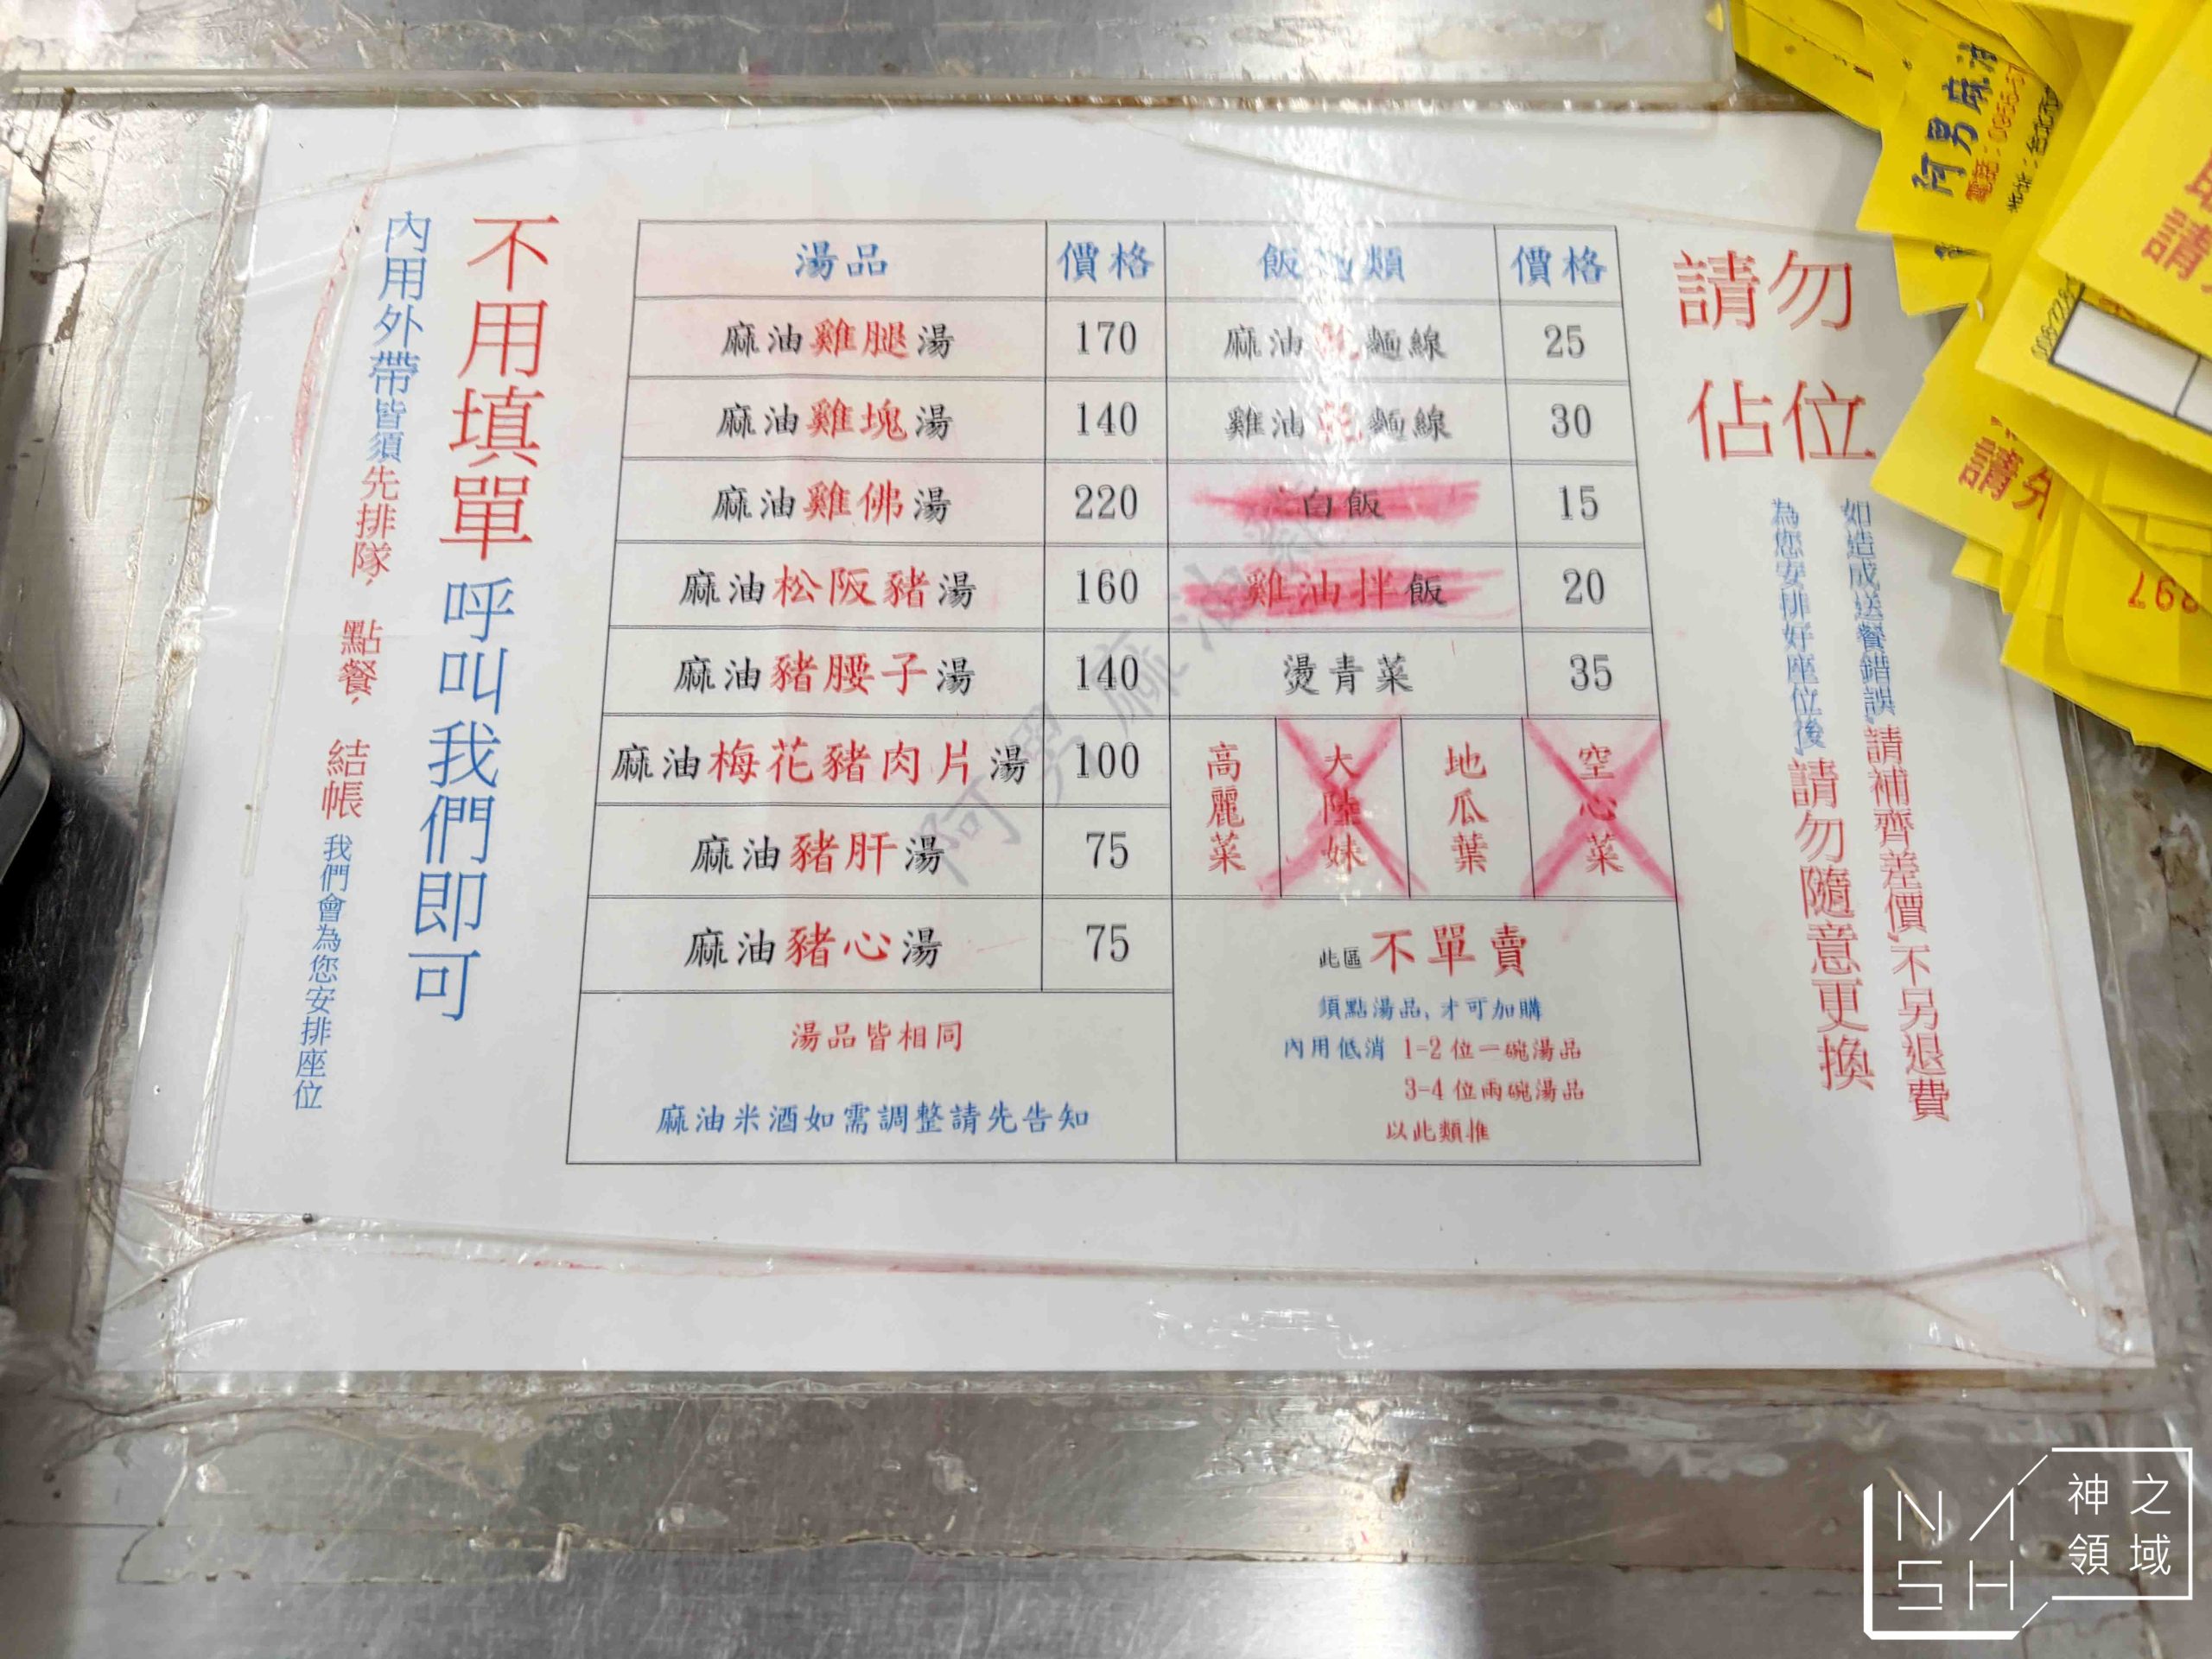 不用填單 呼叫我們即可
內用外帶皆須先排隊、點餐、結帳 我們會為您安排座位
湯品 價格 飯 類 價格
麻油雞腿湯 170 麻油 麵線 25
麻油雞塊湯 140 雞油乾麵線 30
麻油雞佛湯 220 白飯 15
麻油松阪豬湯 160 雞油拌飯 20
麻油豬腰子湯 140 燙青菜 35
麻油梅花豬肉片湯 100 高麗菜 大陸妹 地瓜葉 空心菜
麻油豬肝湯 75
麻油豬心湯 75
湯品皆相同
麻油米酒如需調整請先告知
此區不單賣
須點湯品、才可加購
內用低消 1-2 位一碗湯品
3-4 位兩碗湯品
以此類推
請勿
佔位
如造成送餐錯誤,請補齊差價,不另退費
為您安排好座位後,請勿隨意更換
阿男麻油
阿男麻油
電話:
請
請勿
897
NASH
神之
領域